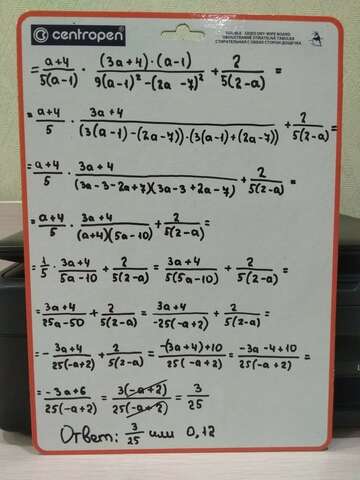 centropen
DOUBLE - SIDED DRY-WIPE BOARD
OBOUSTRANNÁ STÍRATELNÁ TABULKA
СТИРАТЕЛЬНАЯ С ОБЕИХ СТОРОН ДОЩЕЧКА
= (a+4)/(5(a-1)) · ((3a+4)·(a-1))/(9(a-1)² - (2a-7)²) + 2/(5(2-a)) =
= (a+4)/5 · (3a+4)/((3(a-1)-(2a-7))·(3(a-1)+(2a-7))) + 2/(5(2-a)) =
= (a+4)/5 · (3a+4)/((3a-3-2a+7)(3a-3+2a-7)) + 2/(5(2-a)) =
= (a+4)/5 · (3a+4)/((a+4)(5a-10)) + 2/(5(2-a)) =
= 1/5 · (3a+4)/(5a-10) + 2/(5(2-a)) = (3a+4)/(5(5a-10)) + 2/(5(2-a)) =
= (3a+4)/(25a-50) + 2/(5(2-a)) = (3a+4)/(-25(-a+2)) + 2/(5(2-a)) =
= - (3a+4)/(25(-a+2)) + 2/(5(2-a)) = (-(3a+4)+10)/(25(-a+2)) = (-3a-4+10)/(25(-a+2)) =
= (-3a+6)/(25(-a+2)) = (3(-a+2))/(25(-a+2)) = 3/25
Ответ: 3/25 или 0,12